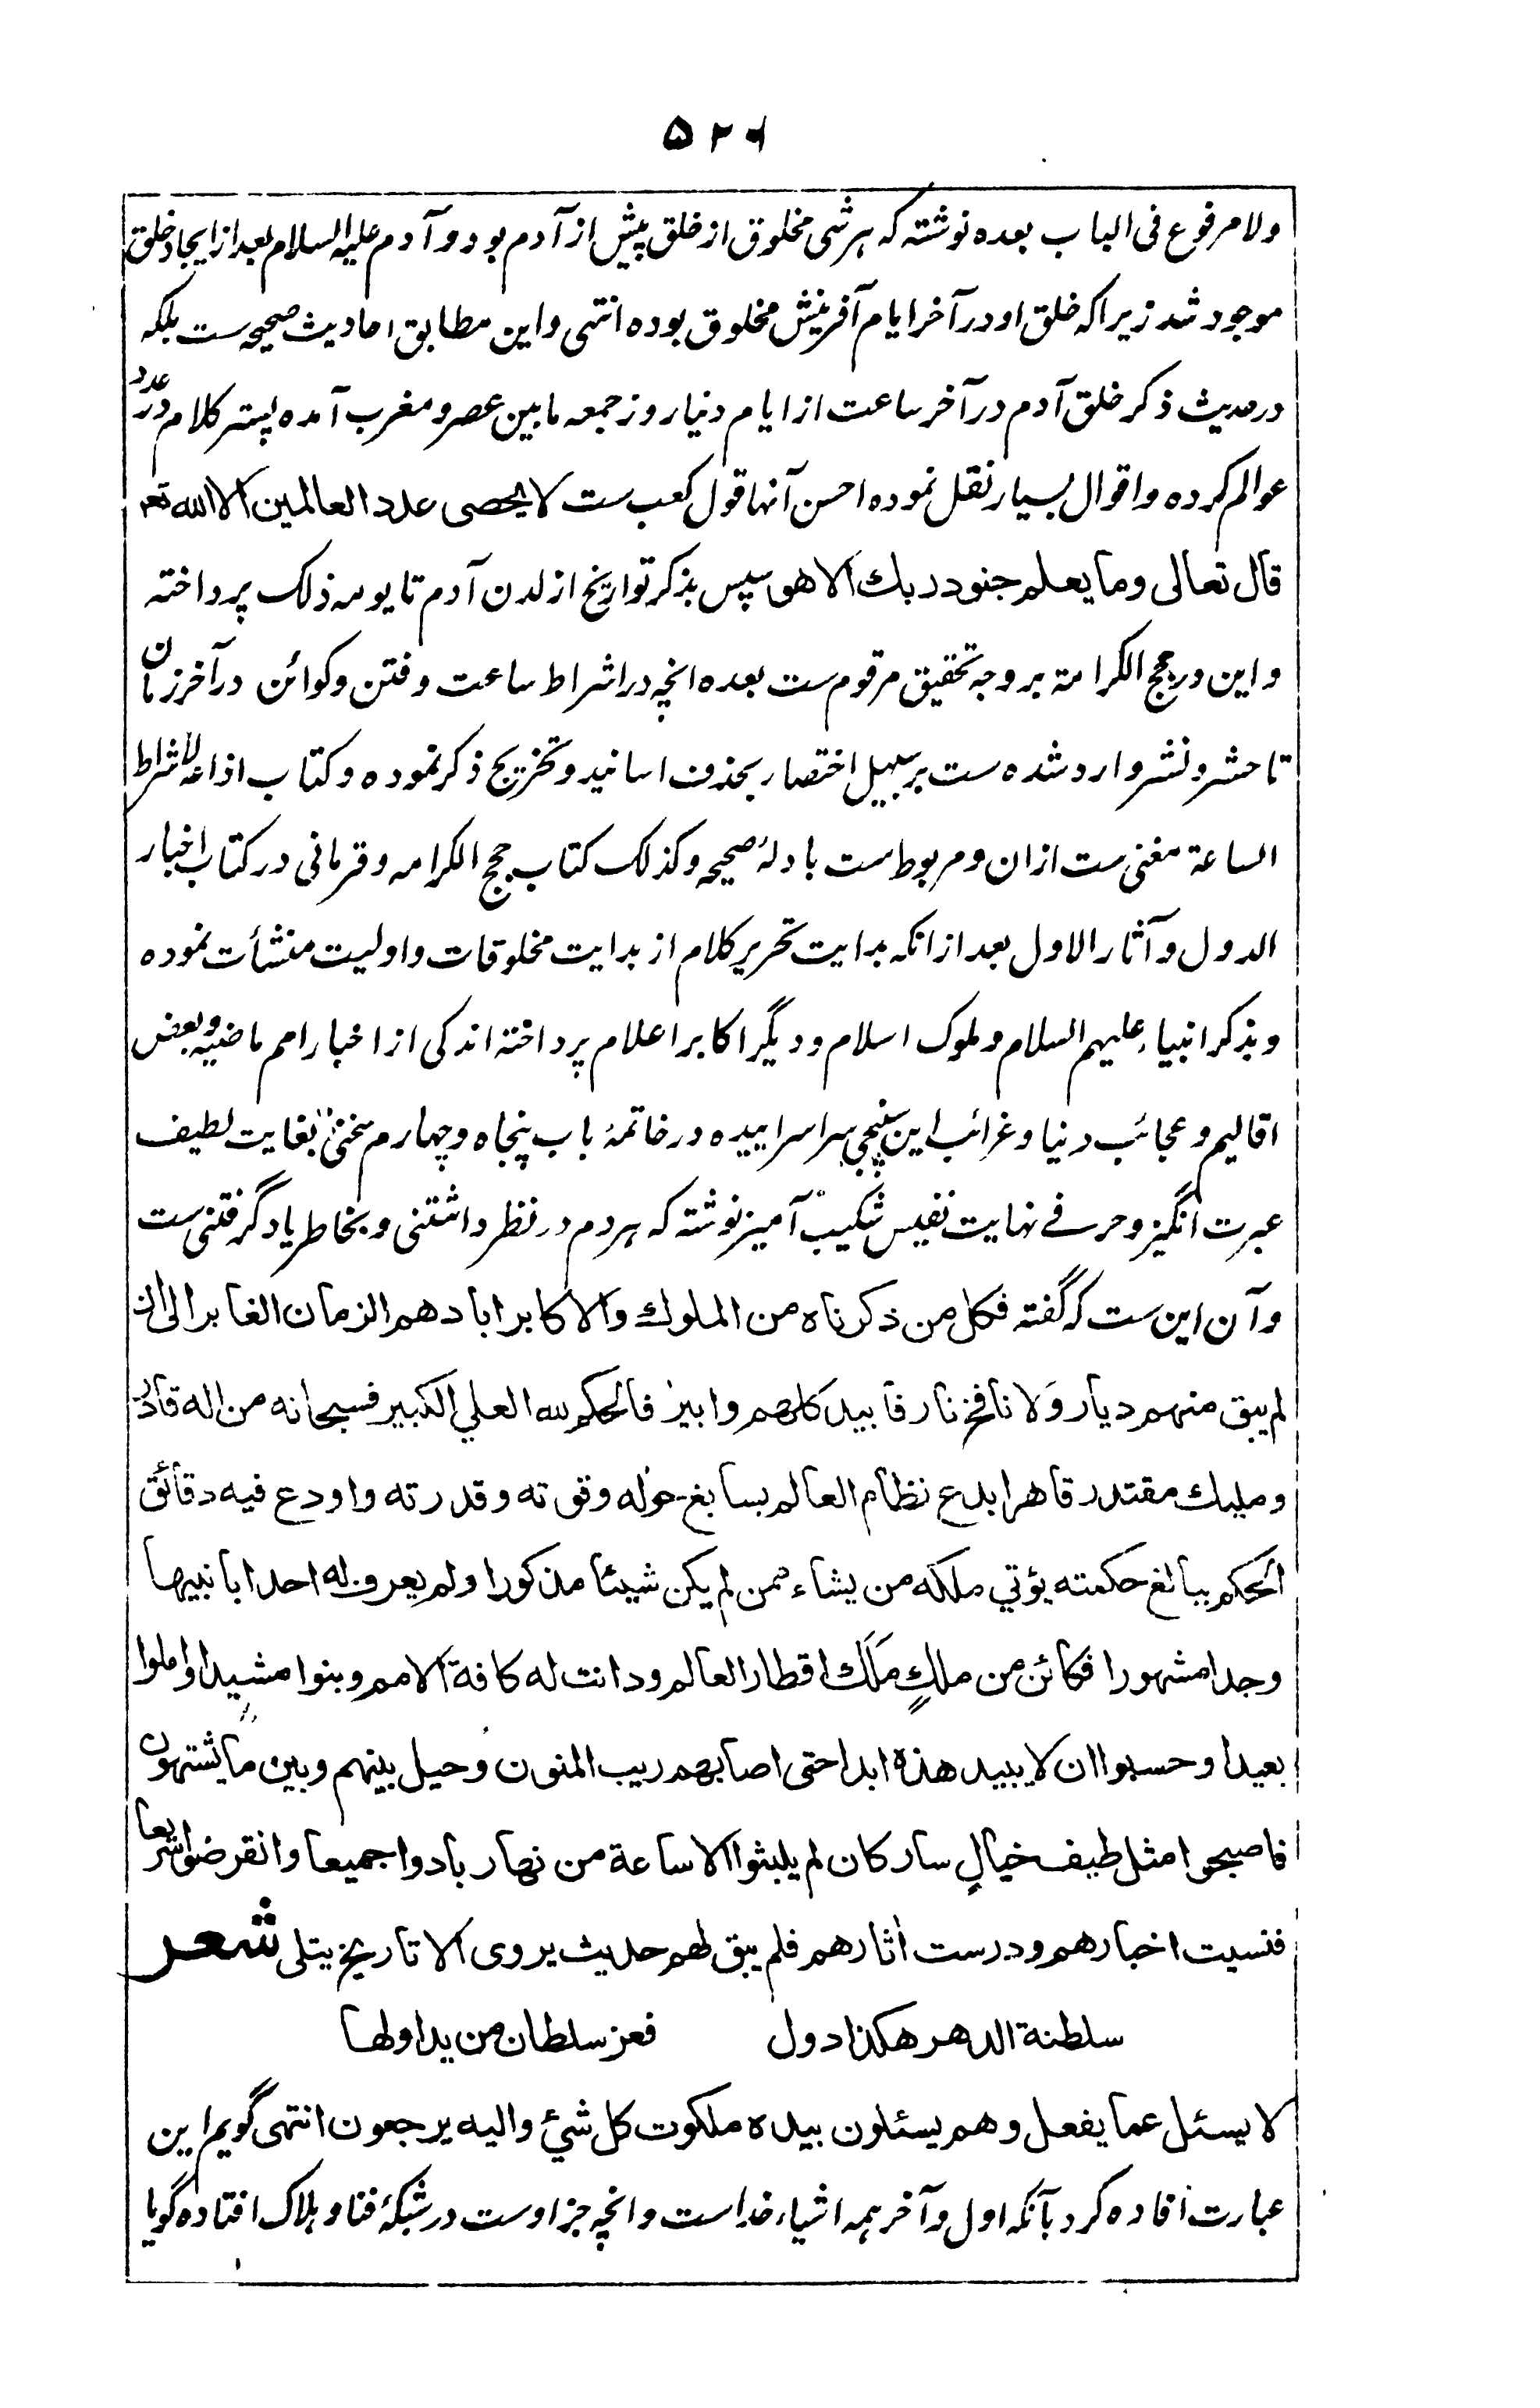 ۵۲۶
ولا مرفوع فی الباب بعده نوشته که هر شی مخلوق از خلق پیش از آدم بود و آدم علیه السلام بعد از ایجاد خلق
موجود شد زیرا که خلق او در آخر ایام آفرینش مخلوق بوده انتهی و این مطابق احادیث صحیحه ست بلکه
در حدیث ذکر خلق آدم در آخر ساعت از ایام دنیا روز جمعه ما بین عصر و مغرب آمده پستر کلام در عدد
عوالم کرده و اقوال بسیار نقل نموده احسن آنها قول کعب ست لا یحصی عدد العالمین الا الله تعم
قال تعالی وما یعلم جنود ربك الا هو سپس بذکر تواریخ از لدن آدم تا یومه ذلک پرداخته
و این در حجج الکرامة بر وجه تحقیق مرقوم ست بعده انچه در اشراط ساعت و فتن و کوائن در آخر زمان
تا حشر و نشر وارد شده ست بر سبیل اختصار بحذف اسانید و تخریج ذکر نموده و کتاب اذاعه لاشراط
الساعة مغنی ست ازان و مربوط ست بادلۀ صحیحه و کذلک کتاب حجج الکرامه و قرمانی در کتاب اخبار
الدول و آثار الاول بعد از انکه بدایت تحریر کلام از بدایت مخلوقات و اولیت منشأت نموده
و بذکر انبیاء علیهم السلام و ملوک اسلام و دیگر اکابر اعلام پرداخته اندکی از اخبار امم ماضیه و بعض
اقالیم و عجائب دنیا و غرائب این سپنجی سرا سراییده در خاتمۀ باب پنجاه و چهارم سخنی بغایت لطیف
عبرت انگیز و حرفے نهایت نفیس شکیب آمیز نوشته که هر دم در نظر داشتنی و بخاطر یاد گرفتنی ست
و آن این ست که گفته فکل من ذکرناه من الملوك والاکابر ابادهم الزمان الغابر الی ان
لم یبق منهم دیار ولا نافخ نار فابید کلهم وابیز فالحکم لله العلي الکبیر فسبحانه من اله قادر
وملیك مقتدر قاهر ابدع نظام العالم بسابغ حوله وقوته وقدرته واودع فیه دقائق
الحکم ببالغ حکمته یؤتي ملکه من یشاء ممن لم یکن شیئا مذکورا ولم یعرف له احد ابا نبیها
وجدا مشهورا فکائن من ملكٍ مَلَك اقطار العالم ودانت له کافة الامم وبنوا مشیدا واملوا
بعیدا وحسبوا ان لا یبید هذه ابدا حتی اصابهم ریب المنون وحیل بینهم وبین ما یشتهون
فاصبحوا مثل طیف خیالٍ سار کان لم یلبثوا الا ساعة من نهار بادوا جمیعا وانقرضوا سریعا
فنسیت اخبارهم ودرست اثارهم فلم یبق لهم حدیث یروی الا تاریخ یتلی شعر
سلطنة الدهر هکذا دول فعز سلطان من یداولها
لا یسئل عما یفعل وهم یسئلون بیده ملکوت کل شئ والیه یرجعون انتهی گویم این
عبارت افاده کرد بآنکه اول و آخر همه اشیاء خداست و انچه جز اوست در شبکۀ فنا و هلاک افتاده گویا